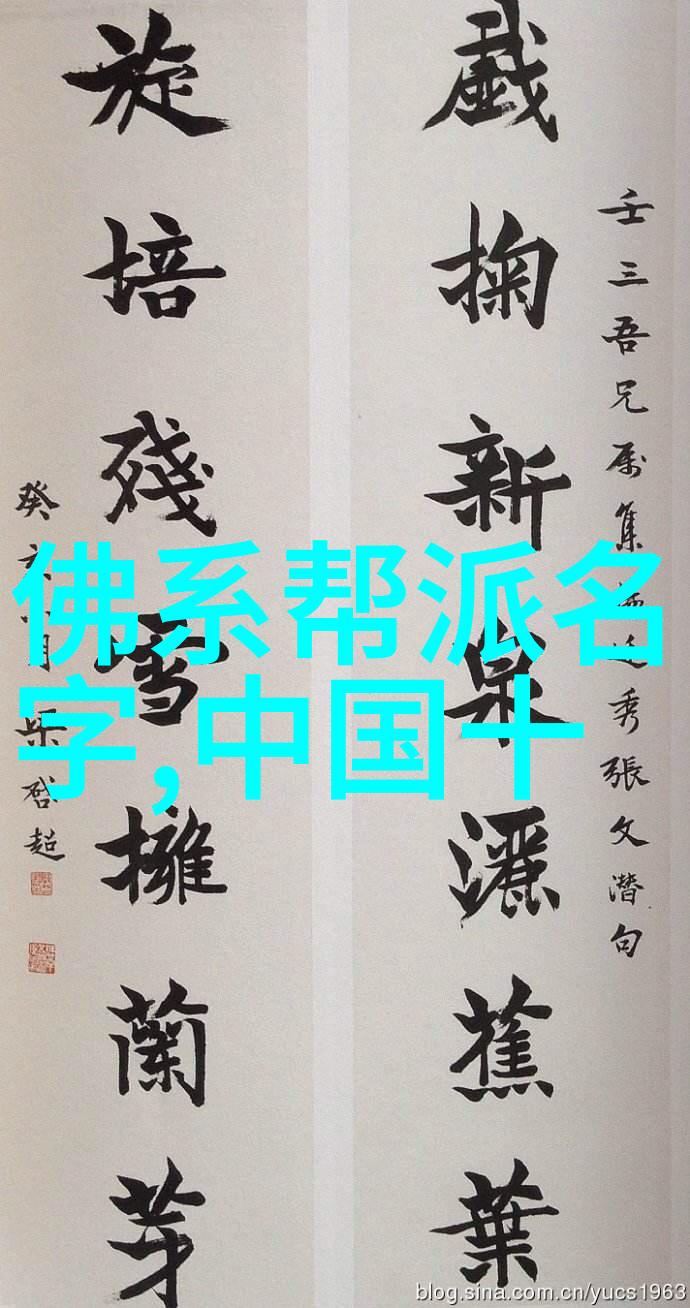 戲掬新泉灑蕉葉
旋培殘雪擁蘭芽
壬三吾兄属集
秀張文潛句
癸亥
月梁啓超
佛系帮派名
字,中国十
blog.sina.com.cn/yucs1963